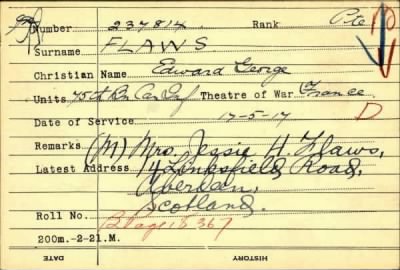 Number 234814. Rank Pte
Surname FLAWS.
Christian Name Edward George
Units 75th Bn Can Inf Theatre of War France
Date of Service 17-5-17 D
Remarks (M) Mrs. Jessie H. Flaws,
Latest Address 14 Linksfield Road,
Aberdeen,
Scotland.
Roll No. B Page 15367
200m.-2-21.M.
DATE HISTORY DATE